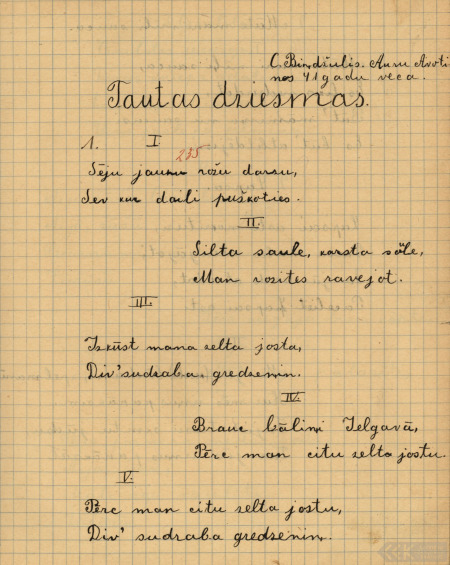 C. Bindžulis. Annu Avoti
nos 41 gadu veca.
Tautas dziesmas.
1. I
235
Sēju jaunu rožu darzu,
Sev kur daili puškoties.
II.
Silta saule, karsta säle,
Man rozites ravejot.
III.
Izkūst mana zelta josta,
Div' sudraba gredzenin.
IV.
Brauc bāliņi Jelgavā,
Pērc man citu zelta jostu.
V.
Pērc man citu zelta jostu,
Div' sudraba gredzeniņ.